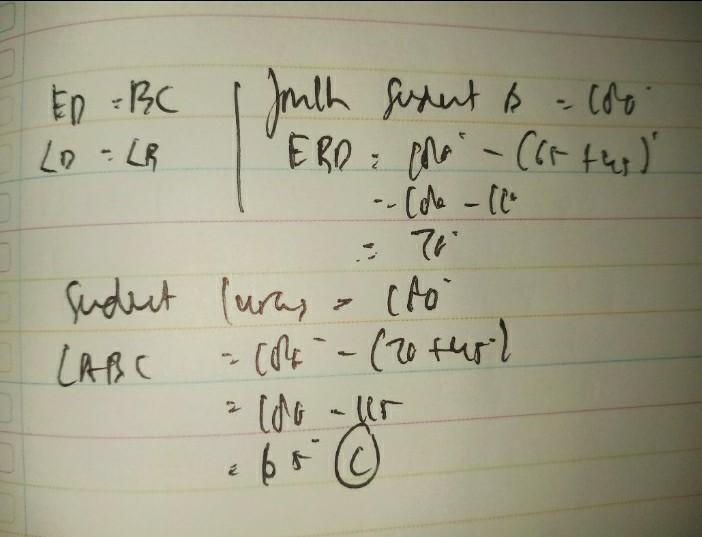 ED = BC
∠D = ∠B
Jumlh Sudut Δ = 180°
EBD = 180° - (65 + 45)°
= 180 - 110
= 70°
Sudut lurus = 180°
∠ABC = 180° - (70 + 45°)
= 180 - 115
= 65° C